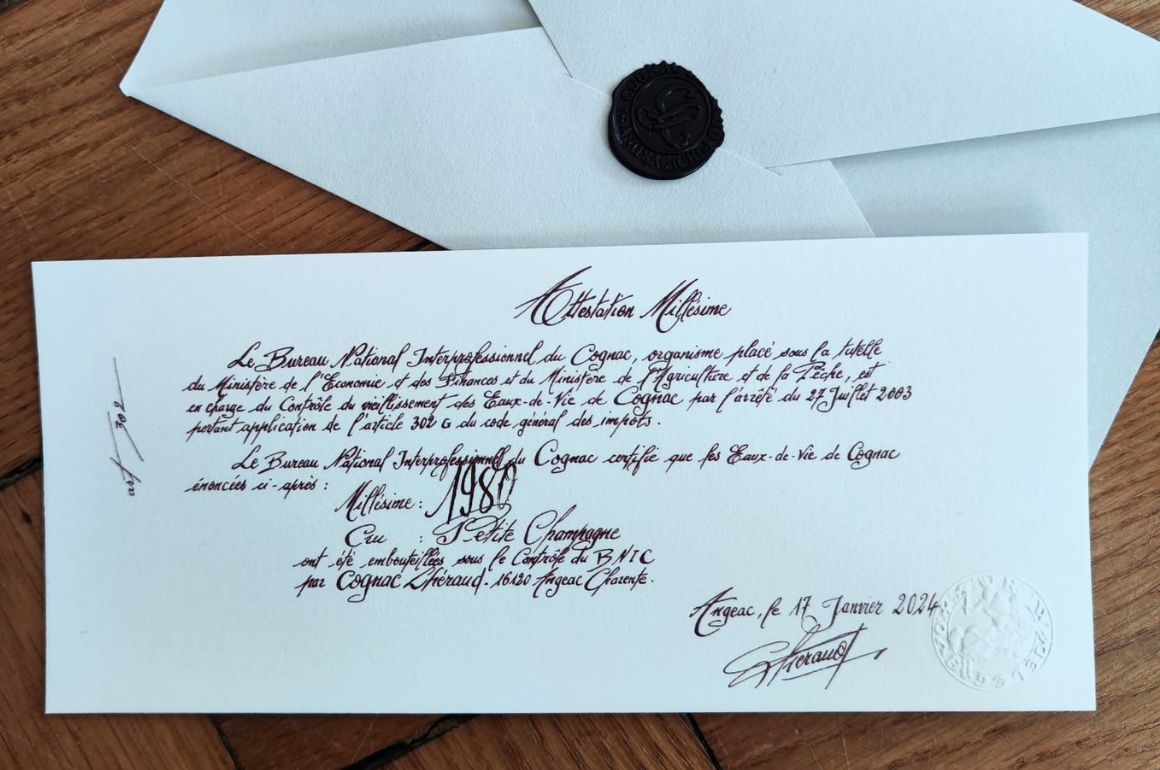 Attestation Millésime
Le Bureau National Interprofessionnel du Cognac, organisme placé sous la tutelle
du Ministère de l'Economie et des Finances et du Ministère de l'Agriculture et de la Pêche, est
en charge du Contrôle du vieillissement des Eaux-de-Vie de Cognac par l'arrêté du 27 Juillet 2003
portant application de l'article 302 G du code général des impôts.
Le Bureau National Interprofessionnel du Cognac certifie que les Eaux-de-Vie de Cognac
énoncées ci-après :
Millésime : 1980
Cru : Petite Champagne
ont été embouteillées sous le Contrôle du BNIC
par Cognac Lhéraud - 16120 Angeac Charente.
Angeac, le 17 Janvier 2024
Lheraud
302